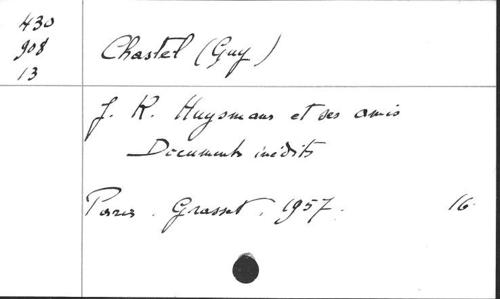 430
908
13
Chastel (Guy)
J. K. Huysmans et ses amis
Documents inédits
Paris. Grasset. 1957. 16